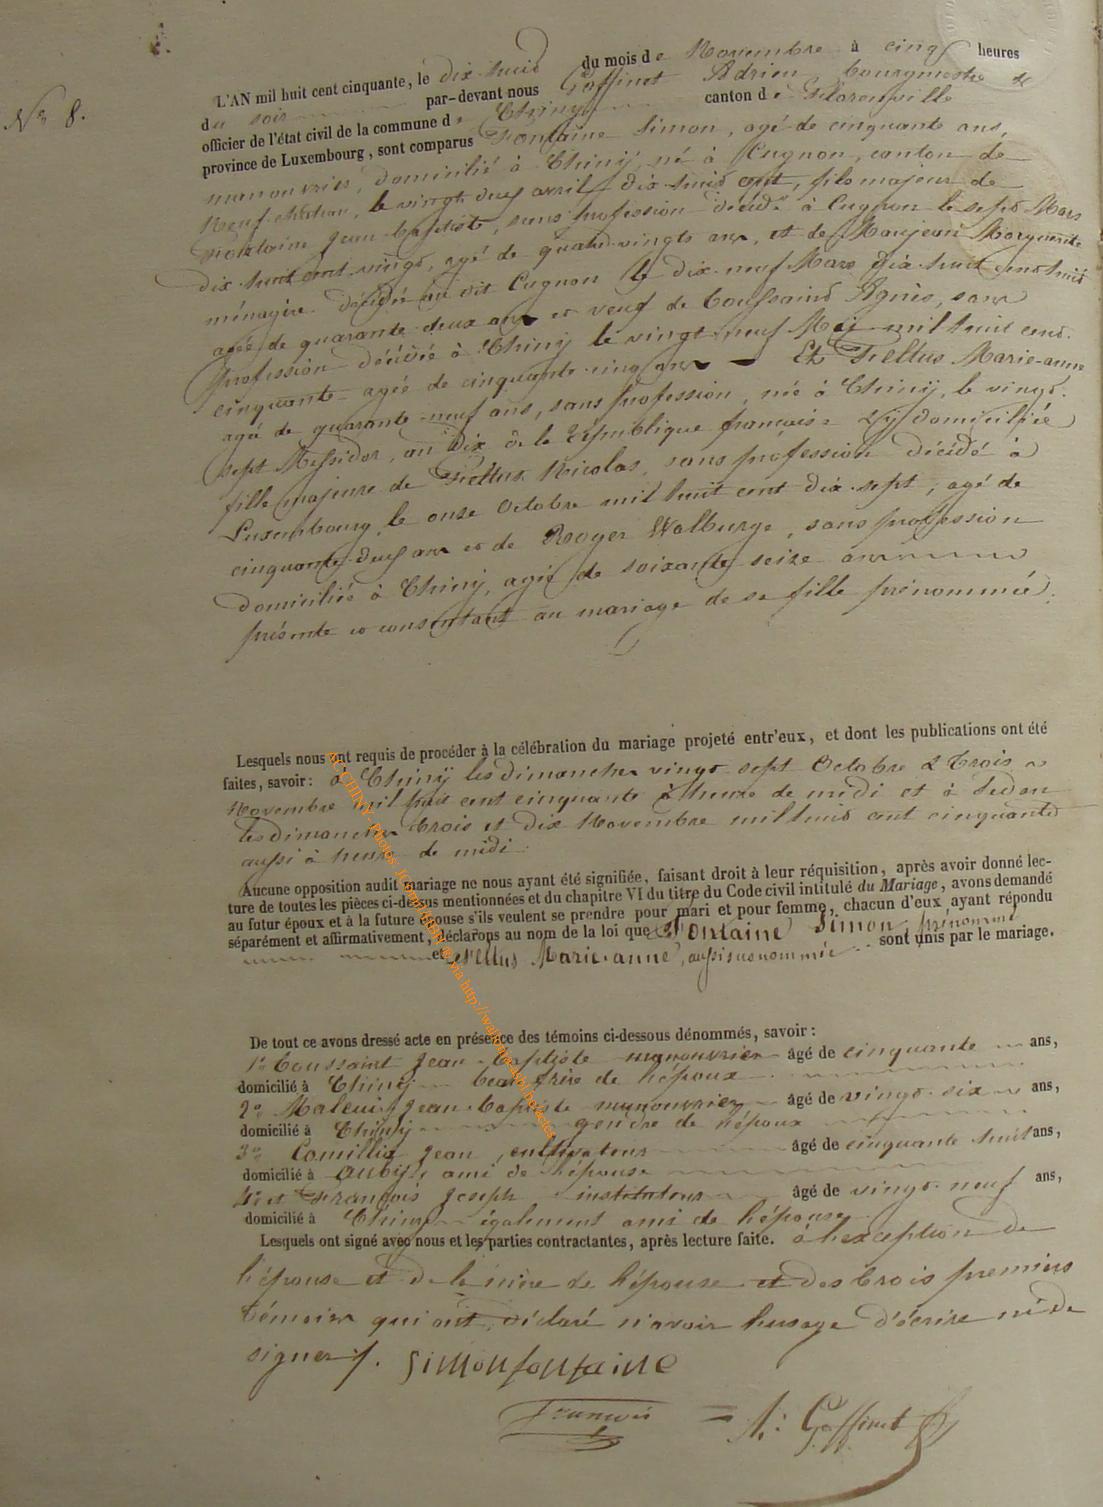 N° 8.
L'AN mil huit cent cinquante, le dix-huit du mois de Novembre à cinq heures
du soir par-devant nous Goffinet Adrien bourgmestre &
officier de l'état civil de la commune de Chiny canton de Florenville
province de Luxembourg, sont comparus Fontaine Simon, agé de cinquante ans,
manouvrier, domicilié à Chiny, né à Cugnon, canton de
Neufchateau, le vingt deux avril dix-huit cent, fils majeur de
Fontaine Jean baptiste, sans profession décédé à Cugnon le sept Mars
dix huit cent vingt, agé de quatre-vingts ans, et de Monjean Marguerite
ménagère décédée au dit Cugnon le dix-neuf Mars dix-huit cent huit
agée de quarante-deux ans et veuf de toussaint Agnès, sans
profession décédée à Chiny le vingt-neuf Mai mil huit cent
cinquante agée de cinquante-cinq ans Et Fellus Marie-anne
agée de quarante-neuf ans, sans profession, née à Chiny, le vingt-
sept Messidor, an Dix de la République française & y domiciliée
fille majeure de Fellus Nicolas, sans profession décédé à
Luxembourg, le onze Octobre mil huit cent dix-sept, agé de
cinquante-deux ans et de Roger Walburge, sans profession
domiciliée à Chiny, agée de soixante seize ans
présente et consentant au mariage de sa fille prénommée.
Lesquels nous ont requis de procéder à la célébration du mariage projeté entr'eux, et dont les publications ont été
faites, savoir : à Chiny les dimanches vingt-sept Octobre & trois
Novembre mil huit cent cinquante à l'heure de midi et à Sedan
les dimanches trois et dix Novembre mil huit cent cinquante
aussi à heure de midi.
Aucune opposition audit mariage ne nous ayant été signifiée, faisant droit à leur réquisition, après avoir donné lec-
ture de toutes les pièces ci-dessus mentionnées et du chapitre VI du titre du Code civil intitulé du Mariage, avons demandé
au futur époux et à la future épouse s'ils veulent se prendre pour mari et pour femme, chacun d'eux ayant répondu
séparément et affirmativement, déclarons au nom de la loi que Fontaine Simon, prénommé
et Fellus Marie-anne, aussi susnommée sont unis par le mariage.
De tout ce avons dressé acte en présence des témoins ci-dessous dénommés, savoir :
1° Toussaint Jean-baptiste manouvrier âgé de cinquante ans,
domicilié à Chiny beau frère de l'époux
2° Jean-baptiste manouvrier âgé de vingt-six ans,
domicilié à Chiny gendre de l'époux
3° Jean, cultivateur âgé de cinquante huit ans,
domicilié à ami de l'épouse
4° et François Joseph instituteur âgé de vingt-neuf ans,
domicilié à Chiny également ami de l'épouse
Lesquels ont signé avec nous et les parties contractantes, après lecture faite. à l'exception de
l'épouse et de la mère de l'épouse et des trois premiers
témoins qui ont déclaré n'avoir l'usage d'écrire ni de
signer. simon fontaine
François A: Goffinet